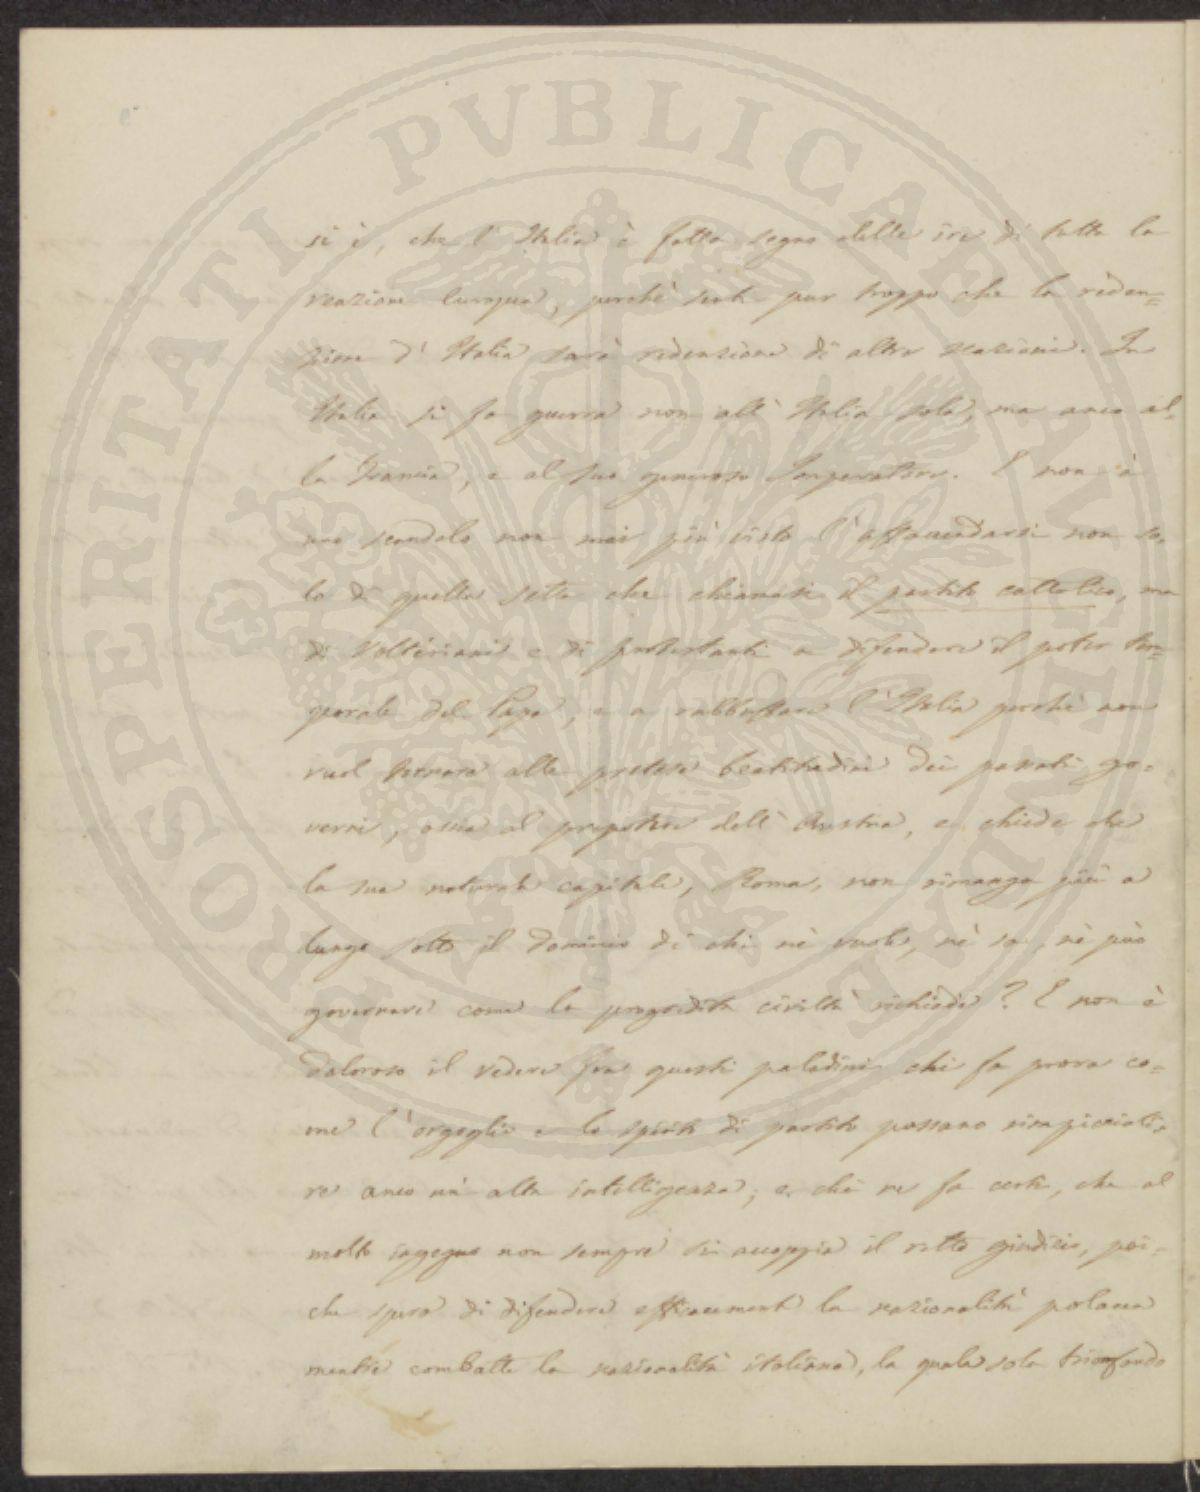 PROSPERITATI PVBLICAE AVGENDAE
si è, che l'Italia è fatta segno delle ire di tutta la
reazione Europea, perchè sente pur troppo che la reden=
zione d'Italia sarà redenzione di altre nazioni. In
Italia si fa guerra non all'Italia sola, ma anco al=
la Francia, e al suo generoso Imperatore. E non è
uno scandalo non mai più visto l'affaccendarsi non so=
lo di quella setta che chiamasi il partito cattolico, ma
di Volteriani e di protestanti a difendere il poter tem=
porale del Papa, e a rabbuffare l'Italia perchè non
vuol tornare alle pretese beatitudini dei passati go=
verni, ossia al prepotere dell'Austria, e chiede che
la sua naturale capitale, Roma, non rimanga più a
lungo sotto il dominio di chi nè vuole, nè sa, nè può
governare come la progredita civiltà richiede? E non è
doloroso il vedere fra questi paladini chi fa prova co=
me l'orgoglio e lo spirito di partito possano rimpiccioli=
re anco un'alta intelligenza; e che ne fa certi, che al
molto ingegno non sempre si accoppia il retto giudizio, poi=
che spera di difendere efficacemente la nazionalità polacca
mentre combatte la nazionalità italiana, la quale sola trionfando